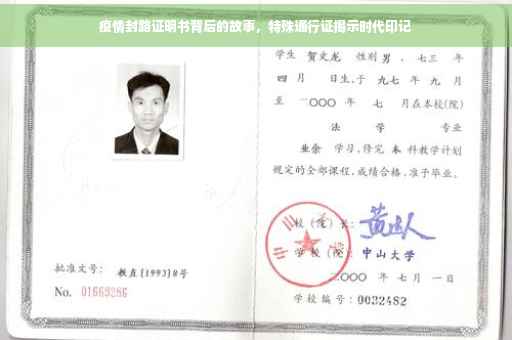 疫情封路证明书背后的故事，特殊通行证揭示时代印记
学生 贺文龙 性别 男 、七三 年
四 月 日生,于 九七 年 九 月
至 二〇〇〇 年 七 月在本校(院)
法 学 专业
业余 学习,修完 本 科教学计划
规定的全部课程,成绩合格,准予毕业。
校（院）长:
学校（院）: 中山大学
二〇〇〇 年 七 月 一 日
批准文号: 教直[1993]8号
No. 01669286
学校编号: 0032482